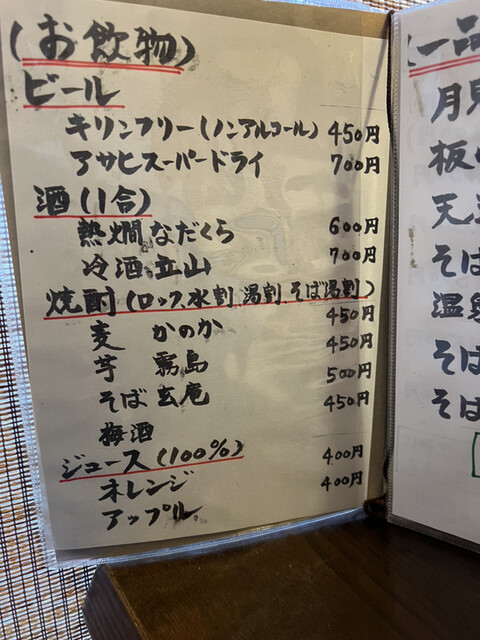 (お飲物)
ビール
キリンフリー(ノンアルコール) 450円
アサヒスーパードライ 700円
酒(1合)
熱燗 なだくら 600円
冷酒 立山 700円
焼酎(ロック、水割、湯割、そば湯割)
麦 かのか 450円
芋 霧島 450円
そば 玄庵 500円
梅酒 450円
ジュース(100%)
オレンジ 400円
アップル 400円
(一品
月見
板
天
そば
温
そ
そば